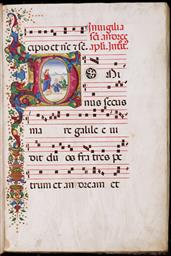 In uigilia
sci andree
capio et nc et sc apli. Introit.
Omi
nus secus
ma re galilee ui
dit du os fratres pe
trum et andream et